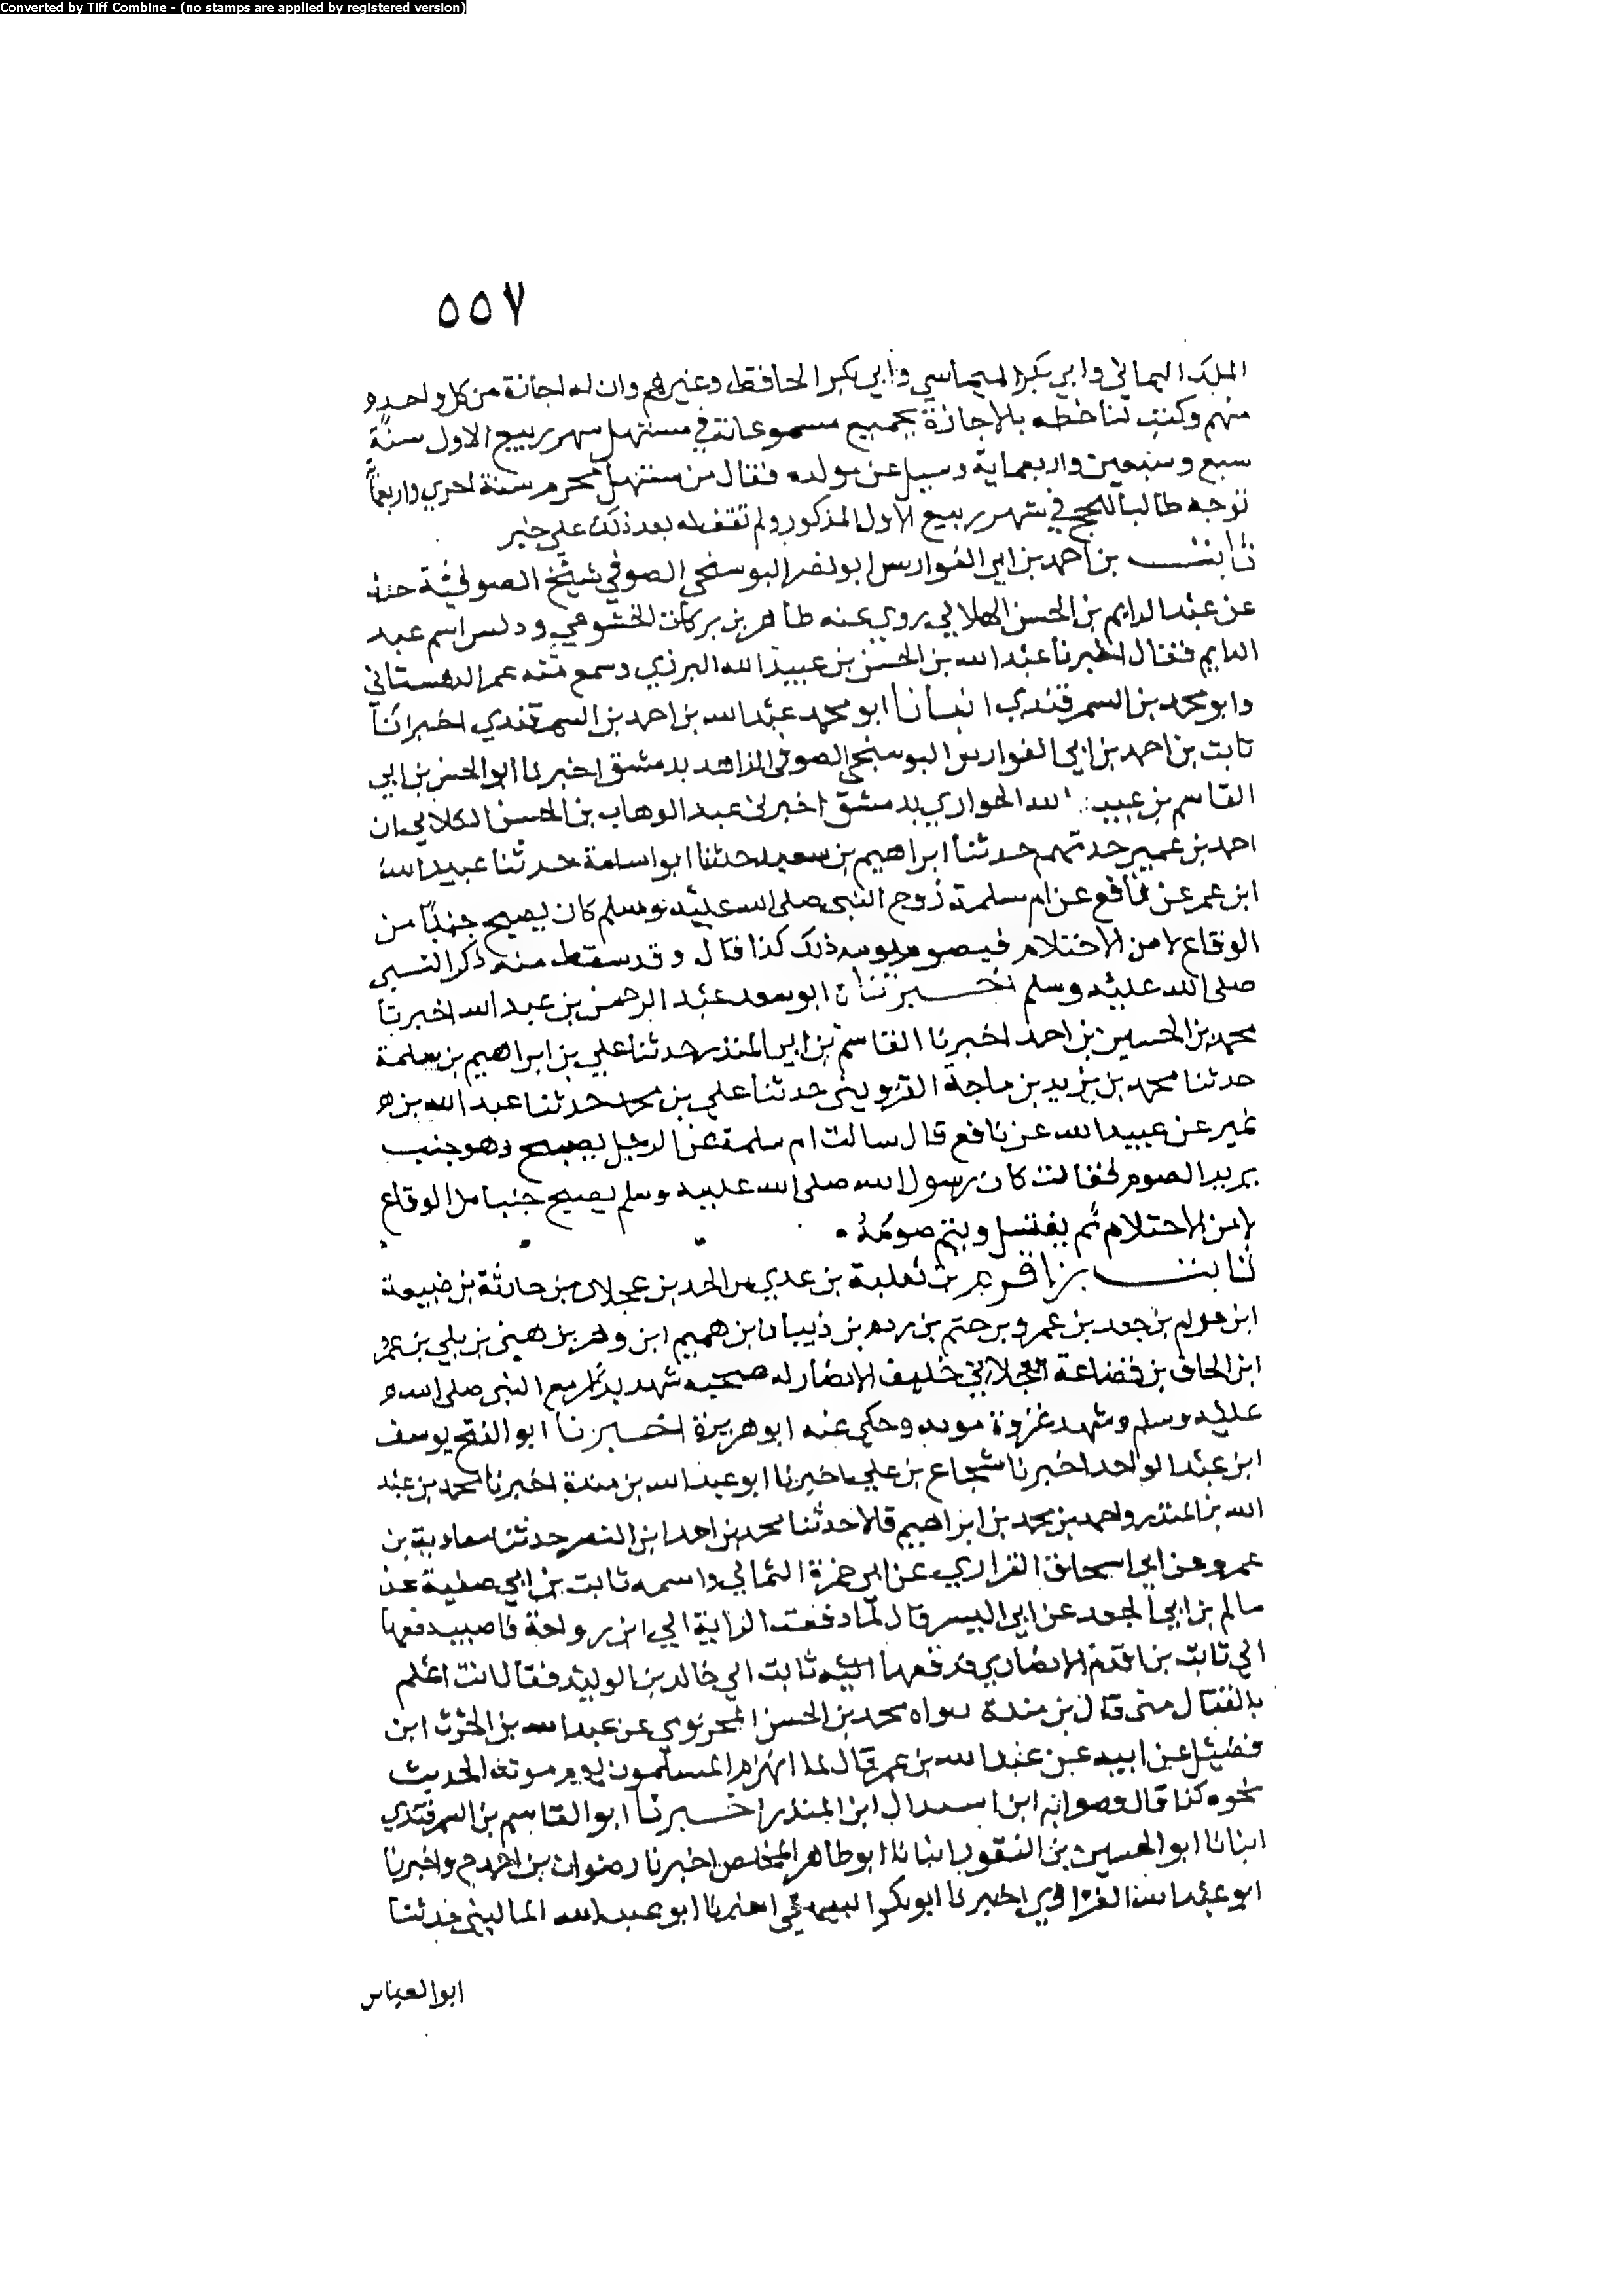 Converted by Tiff Combine - (no stamps are applied by registered version)
٥٥٧
الملك اليماني وابي بكر الميماسي وابي بكر الحافظ وغيرهم وان له اجازة من كل واحد
منهم وكتب لنا خطه بالاجازة بجميع مسموعاته في مستهل شهر ربيع الاول سنة
سبع وسبعين واربعماية وسيل عن مولده فقال من مستهل محرم سنة احدي واربعماية
توجه طالبا للحج في شهر ربيع الاول المذكور ولم نقف له بعد ذلك علي خبر
ثابت بن احمد بن ابي الفوارس ابو نصر البوسنجي الصوفي شيخ الصوفية حدث
عن عبد الدايم بن الحسن الهلالي روي عنه طاهر بن بركات الخشوعي ودلس اسم عبد
الدايم فقال اخبرنا عبد الله بن الحسن بن عبيد الله البرزي وسمع منه عمر الدهستاني
وابو محمد بن السمرقندي انبانا ابو محمد عبد الله بن احمد بن السمرقندي اخبرنا
ثابت بن احمد بن ابي الفوارس البوسنجي الصوفي الزاهد بدمشق اخبرنا ابو الحسن بن ابي
القاسم بن عبيد الله الحواري بدمشق اخبرني عبد الوهاب بن الحسن الكلابي ان
احمد بن عمير حدثهم حدثنا ابراهيم بن سعيد حدثنا ابو اسامة حدثنا عبيد الله
ابن عمر عن نافع عن ام سلمة زوج النبي صلي الله عليه وسلم كان يصبح جنبا من
الوقاع لا من الاحتلام فيصوم يومه ذلك كذا قال وقد سقط منه ذكر النبي
صلي الله عليه وسلم اخبرناه ابو سعد عبد الرحمن بن عبد الله اخبرنا
محمد بن الحسين بن احمد اخبرنا القاسم بن ابي المنذر حدثنا علي بن ابراهيم بن سلمة
حدثنا محمد بن يزيد بن ماجة القزويني حدثنا علي بن محمد حدثنا عبد الله بن
نمير عن عبيد الله عن نافع قال سالت ام سلمة عن الرجل يصبح وهو جنب
يريد الصوم فقالت كان رسول الله صلي الله عليه وسلم يصبح جنبا من الوقاع
لا من الاحتلام ثم يغتسل ويتم صومه
ثابت بن اقرم بن ثعلبة بن عدي بن الجد بن عجلان بن حارثة بن ضبيعة
ابن حرام بن جعد بن عمرو بن جشم بن ودم بن ذبيان بن هميم ابن وهر بن هني بن بلي بن عمرو
ابن الحاف بن قضاعة العجلاني حليف الانصار له صحبه شهد بدرا مع النبي صلي الله
عليه وسلم وشهد غزوة موته وحكي عنه ابو هريرة اخبرنا ابو الفتح يوسف
ابن عبد الواحد اخبرنا شجاع بن علي اخبرنا ابو عبد الله بن مندة اخبرنا محمد بن عبد
الله بن المنذر واحمد بن محمد بن ابراهيم قالا حدثنا محمد بن احمد ابن النضر حدثنا معاوية بن
عمرو عن ابي اسحاق الفزاري عن ابي حمزة الثمالي واسمه ثابت بن ابي صفية عن
سالم بن ابي الجعد عن ابي اليسر قال لما دفعت الراية الي ابن رواحة فاصيب دفعها
الي ثابت بن اقرم الانصاري فدفعها اليه ثابت الي خالد بن الوليد فقال انت اعلم
بالقتال مني قال بن مندة رواه محمد بن الحسن المخزومي عن عبد الله بن الحرث ابن
فضيل عن ابيه عن عبد الله بن عمر قال لما انهزم المسلمون يوم موته الحديث
نحوه كذا قال وصوابه ابن اسد ال ابن المنذر اخبرنا ابو القاسم بن السمرقندي
انبانا ابو الحسين بن النقور انبانا ابو طاهر المخلص اخبرنا رضوان بن احمد ح واخبرنا
ابو عبد الله الفراوي اخبرنا ابو بكر البيهقي اخبرنا ابو عبد الله الماليني حدثنا
ابو العباس